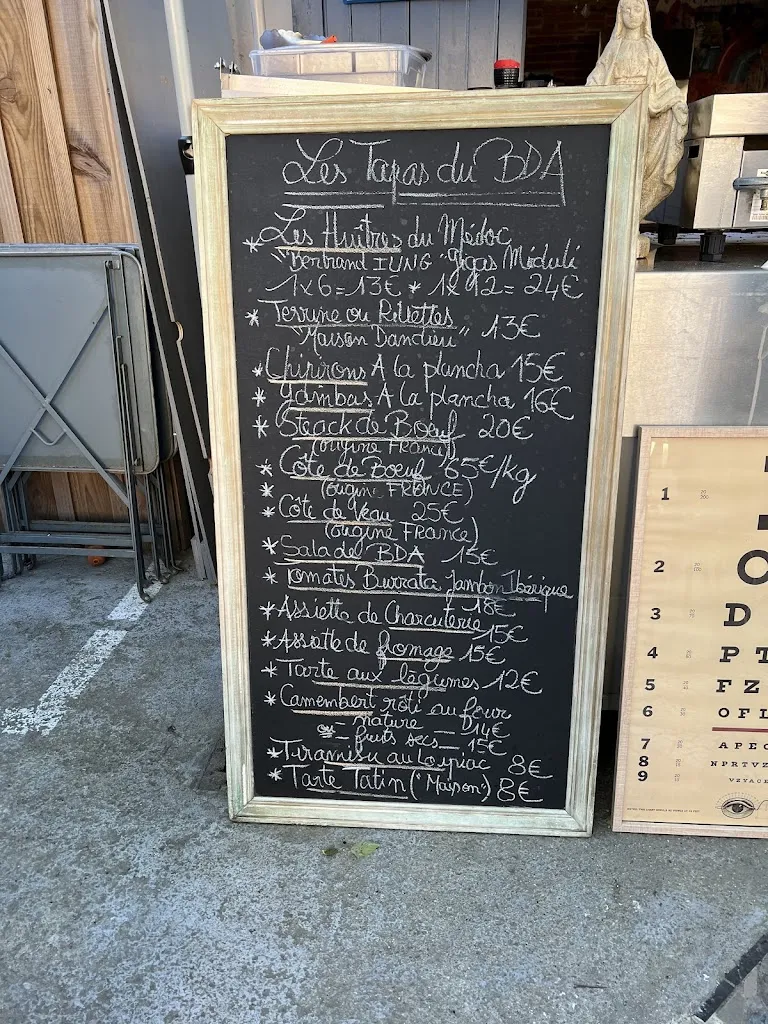 Les Tapas du BDA
* Les Huîtres du Médoc
"Bertrand IUNG" Gigas Méduli
1x6=13€ * 1x12=24€
* Terrine ou Rillettes 13€
"Maison Dandieu"
* Chipirons A la plancha 15€
* Gambas A la plancha 16€
* Steack de Boeuf 20€
(origine France)
* Côte de Boeuf 65€/kg
* (origine FRANCE)
* Côte de Veau 25€
(origine France)
* Salade BDA 15€
* Tomates Burrata Jambon Ibérique
18€
* Assiette de Charcuterie 15€
* Assiette de fromage 15€
* Tarte aux légumes 12€
* Camembert rôti au four
- nature — 14€
- fruits secs — 15€
* Tiramisu au 8€
* Tarte Tatin ("Maison") 8€
1
2 O
3 D
4 P T
5 F Z
6 O F L
7 A P E O
8 N P R T V Z
9 V Z Y A C E